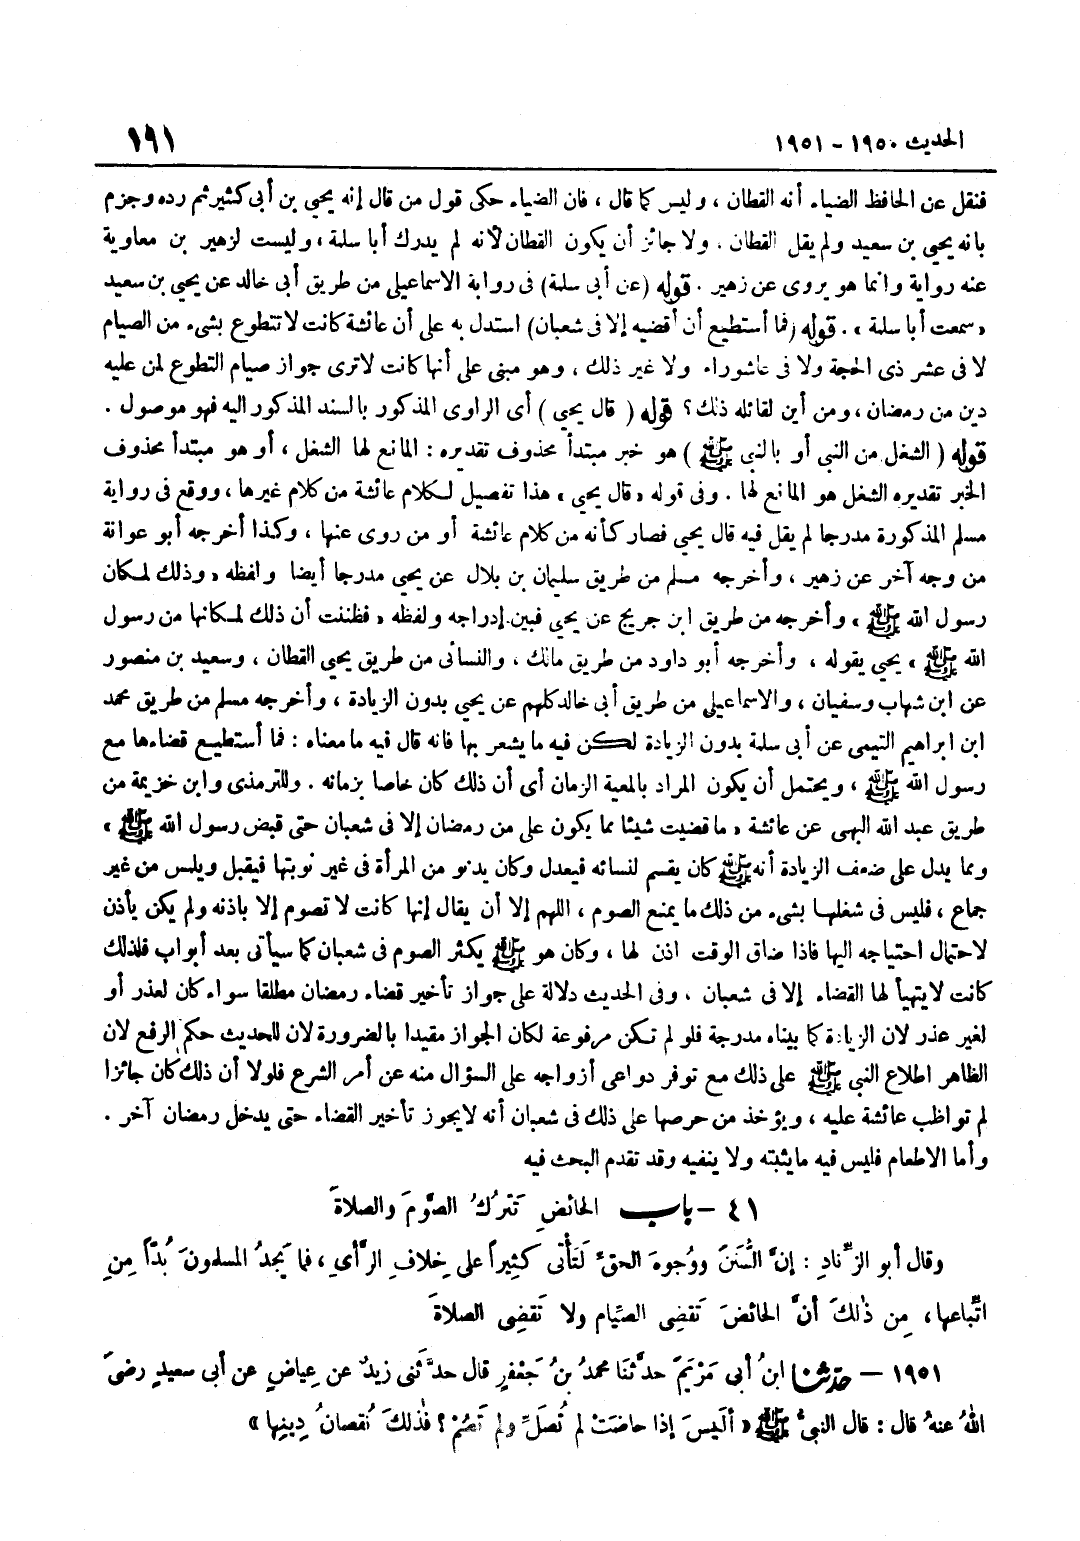 الحديث ١٩٥٠ - ١٩٥١
١٩١
فنقل عن الحافظ الضياء أنه القطان ، وليس كما قال ، فان الضياء حكى قول من قال إنه يحيى بن أبى كثير ثم رده وجزم
بانه يحيى بن سعيد ولم يقل القطان . ولا جائز أن يكون القطان لأنه لم يدرك أبا سلمة ، وليست لزهير بن معاوية
عنه رواية وانما هو يروى عن زهير . قوله (عن أبى سلمة) فى رواية الاسماعيلى من طريق أبى خالد عن يحيى بن سعيد
« سمعت أبا سلمة » . قوله (فما أستطيع أن أقضيه إلا فى شعبان) استدل به على أن عائشة كانت لا تتطوع بشىء من الصيام
لا فى عشر ذى الحجة ولا فى عاشوراء ولا غير ذلك ، وهو مبنى على أنها كانت لا ترى جواز صيام التطوع لمن عليه
دين من رمضان ، ومن أين لقائله ذلك ؟ قوله ( قال يحيى ) أى الراوى المذكور بالسند المذكور اليه فهو موصول .
قوله ( الشغل من النبى أو بالنبى ﷺ ) هو خبر مبتدأ محذوف تقديره : المانع لها الشغل ، أو هو مبتدأ محذوف
الخبر تقديره الشغل هو المانع لها . وفى قوله « قال يحيى » هذا تفصيل لكلام عائشة من كلام غيرها ، ووقع فى رواية
مسلم المذكورة مدرجا لم يقل فيه قال يحيى فصار كأنه من كلام عائشة أو من روى عنها ، وكذا أخرجه أبو عوانة
من وجه آخر عن زهير ، وأخرجه مسلم من طريق سليمان بن بلال عن يحيى مدرجا أيضا ولفظه « وذلك لمكان
رسول الله ﷺ » وأخرجه من طريق ابن جريج عن يحيى فبين إدراجه ولفظه « فظننت أن ذلك لمكانها من رسول
الله ﷺ » يحيى يقوله ، وأخرجه أبو داود من طريق مالك ، والنسائى من طريق يحيى القطان ، وسعيد بن منصور
عن ابن شهاب وسفيان ، والاسماعيلى من طريق أبى خالد كلهم عن يحيى بدون الزيادة ، وأخرجه مسلم من طريق محمد
ابن ابراهيم التيمى عن أبى سلمة بدون الزيادة لكن فيه ما يشعر بها فانه قال فيه ما معناه : فما أستطيع قضاءها مع
رسول الله ﷺ ، ويحتمل أن يكون المراد بالمعية الزمان أى أن ذلك كان خاصا بزمانه . وللترمذى وابن خزيمة من
طريق عبد الله البهى عن عائشة « ما قضيت شيئا مما يكون على من رمضان إلا فى شعبان حتى قبض رسول الله ﷺ »
ومما يدل على ضعف الزيادة أنه ﷺ كان يقسم لنسائه فيعدل وكان يدنو من المرأة فى غير نوبتها فيقبل ويلمس من غير
جماع ، فليس فى شغلها بشىء من ذلك ما يمنع الصوم ، اللهم إلا أن يقال إنها كانت لا تصوم إلا باذنه ولم يكن يأذن
لاحتمال احتياجه اليها فاذا ضاق الوقت اذن لها ، وكان هو ﷺ يكثر الصوم فى شعبان كما سيأتى بعد أبواب فلذلك
كانت لا يتهيأ لها القضاء إلا فى شعبان ، وفى الحديث دلالة على جواز تأخير قضاء رمضان مطلقا سواء كان لعذر أو
لغير عذر لان الزيادة كما بيناه مدرجة فلو لم تكن مرفوعة لكان الجواز مقيدا بالضرورة لان للحديث حكم الرفع لان
الظاهر اطلاع النبى ﷺ على ذلك مع توفر دواعى أزواجه على السؤال منه عن أمر الشرع فلولا أن ذلك كان جائزا
لم تواظب عائشة عليه ، ويؤخذ من حرصها على ذلك فى شعبان أنه لا يجوز تأخير القضاء حتى يدخل رمضان آخر .
وأما الاطعام فليس فيه ما يثبته ولا ينفيه وقد تقدم البحث فيه
٤١ - باب الحائضِ تَتركُ الصَّومَ والصلاةَ
وقال أبو الزِّنادِ : إنَّ السُّنَنَ ووُجوهَ الحقِّ لَتَأْتى كثيراً على خلافِ الرَّأىِ ، فما يَجِدُ المسلمونَ بُدّاً مِنِ
اتِّباعها ، مِن ذٰلكَ أنَّ الحائضَ تَقضِى الصِّيام ولا تَقضِى الصلاةَ
١٩٥١ - حدثنا ابنُ أبى مَرْيَمَ حدَّثَنا محمدُ بنُ جَعْفرٍ قال حدَّثَنى زيدٌ عن عِياضٍ عن أبى سعيدٍ رضىَ
اللهُ عنهُ قال : قال النبىُّ ﷺ « أليسَ إذا حاضَتْ لم تُصَلِّ ولم تَصُمْ ؟ فذٰلكَ نُقصانُ دِينِها »